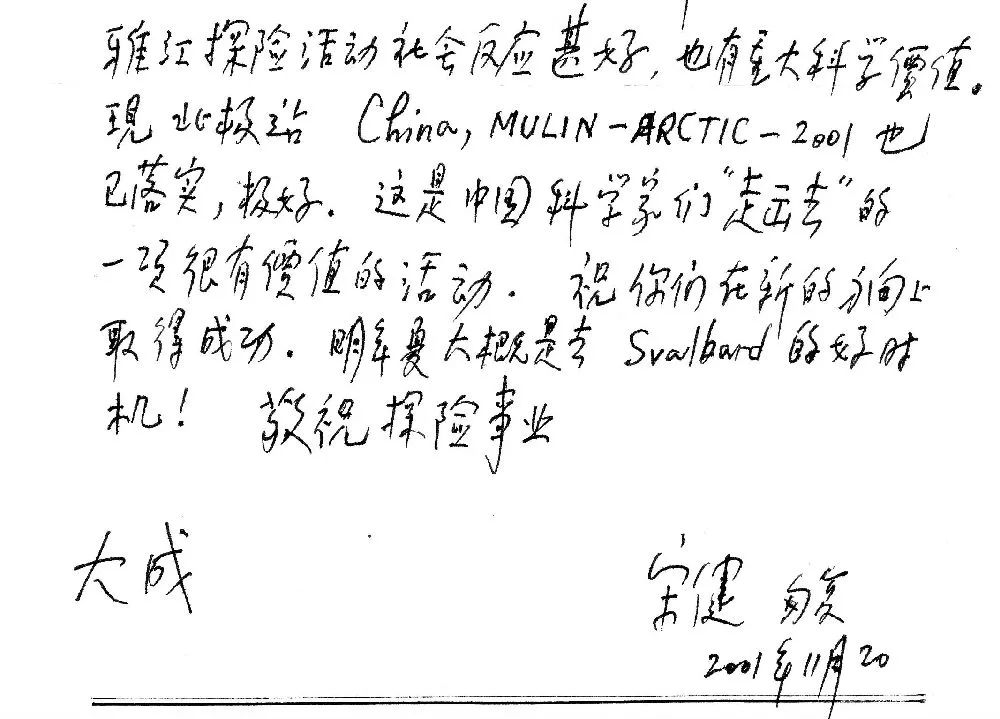 雅江探险活动社会反应甚好，也有重大科学價值。
現北极站 China, MULIN-ARCTIC-2001 也
已落实，极好. 这是中国科学家们"走出去"的
一项很有價值的活动. 祝你们在新的方向上
取得成功. 明年夏大概是去 Svalbard 的好时
机! 敬祝探险事业
大成
宋健
2001年11月20